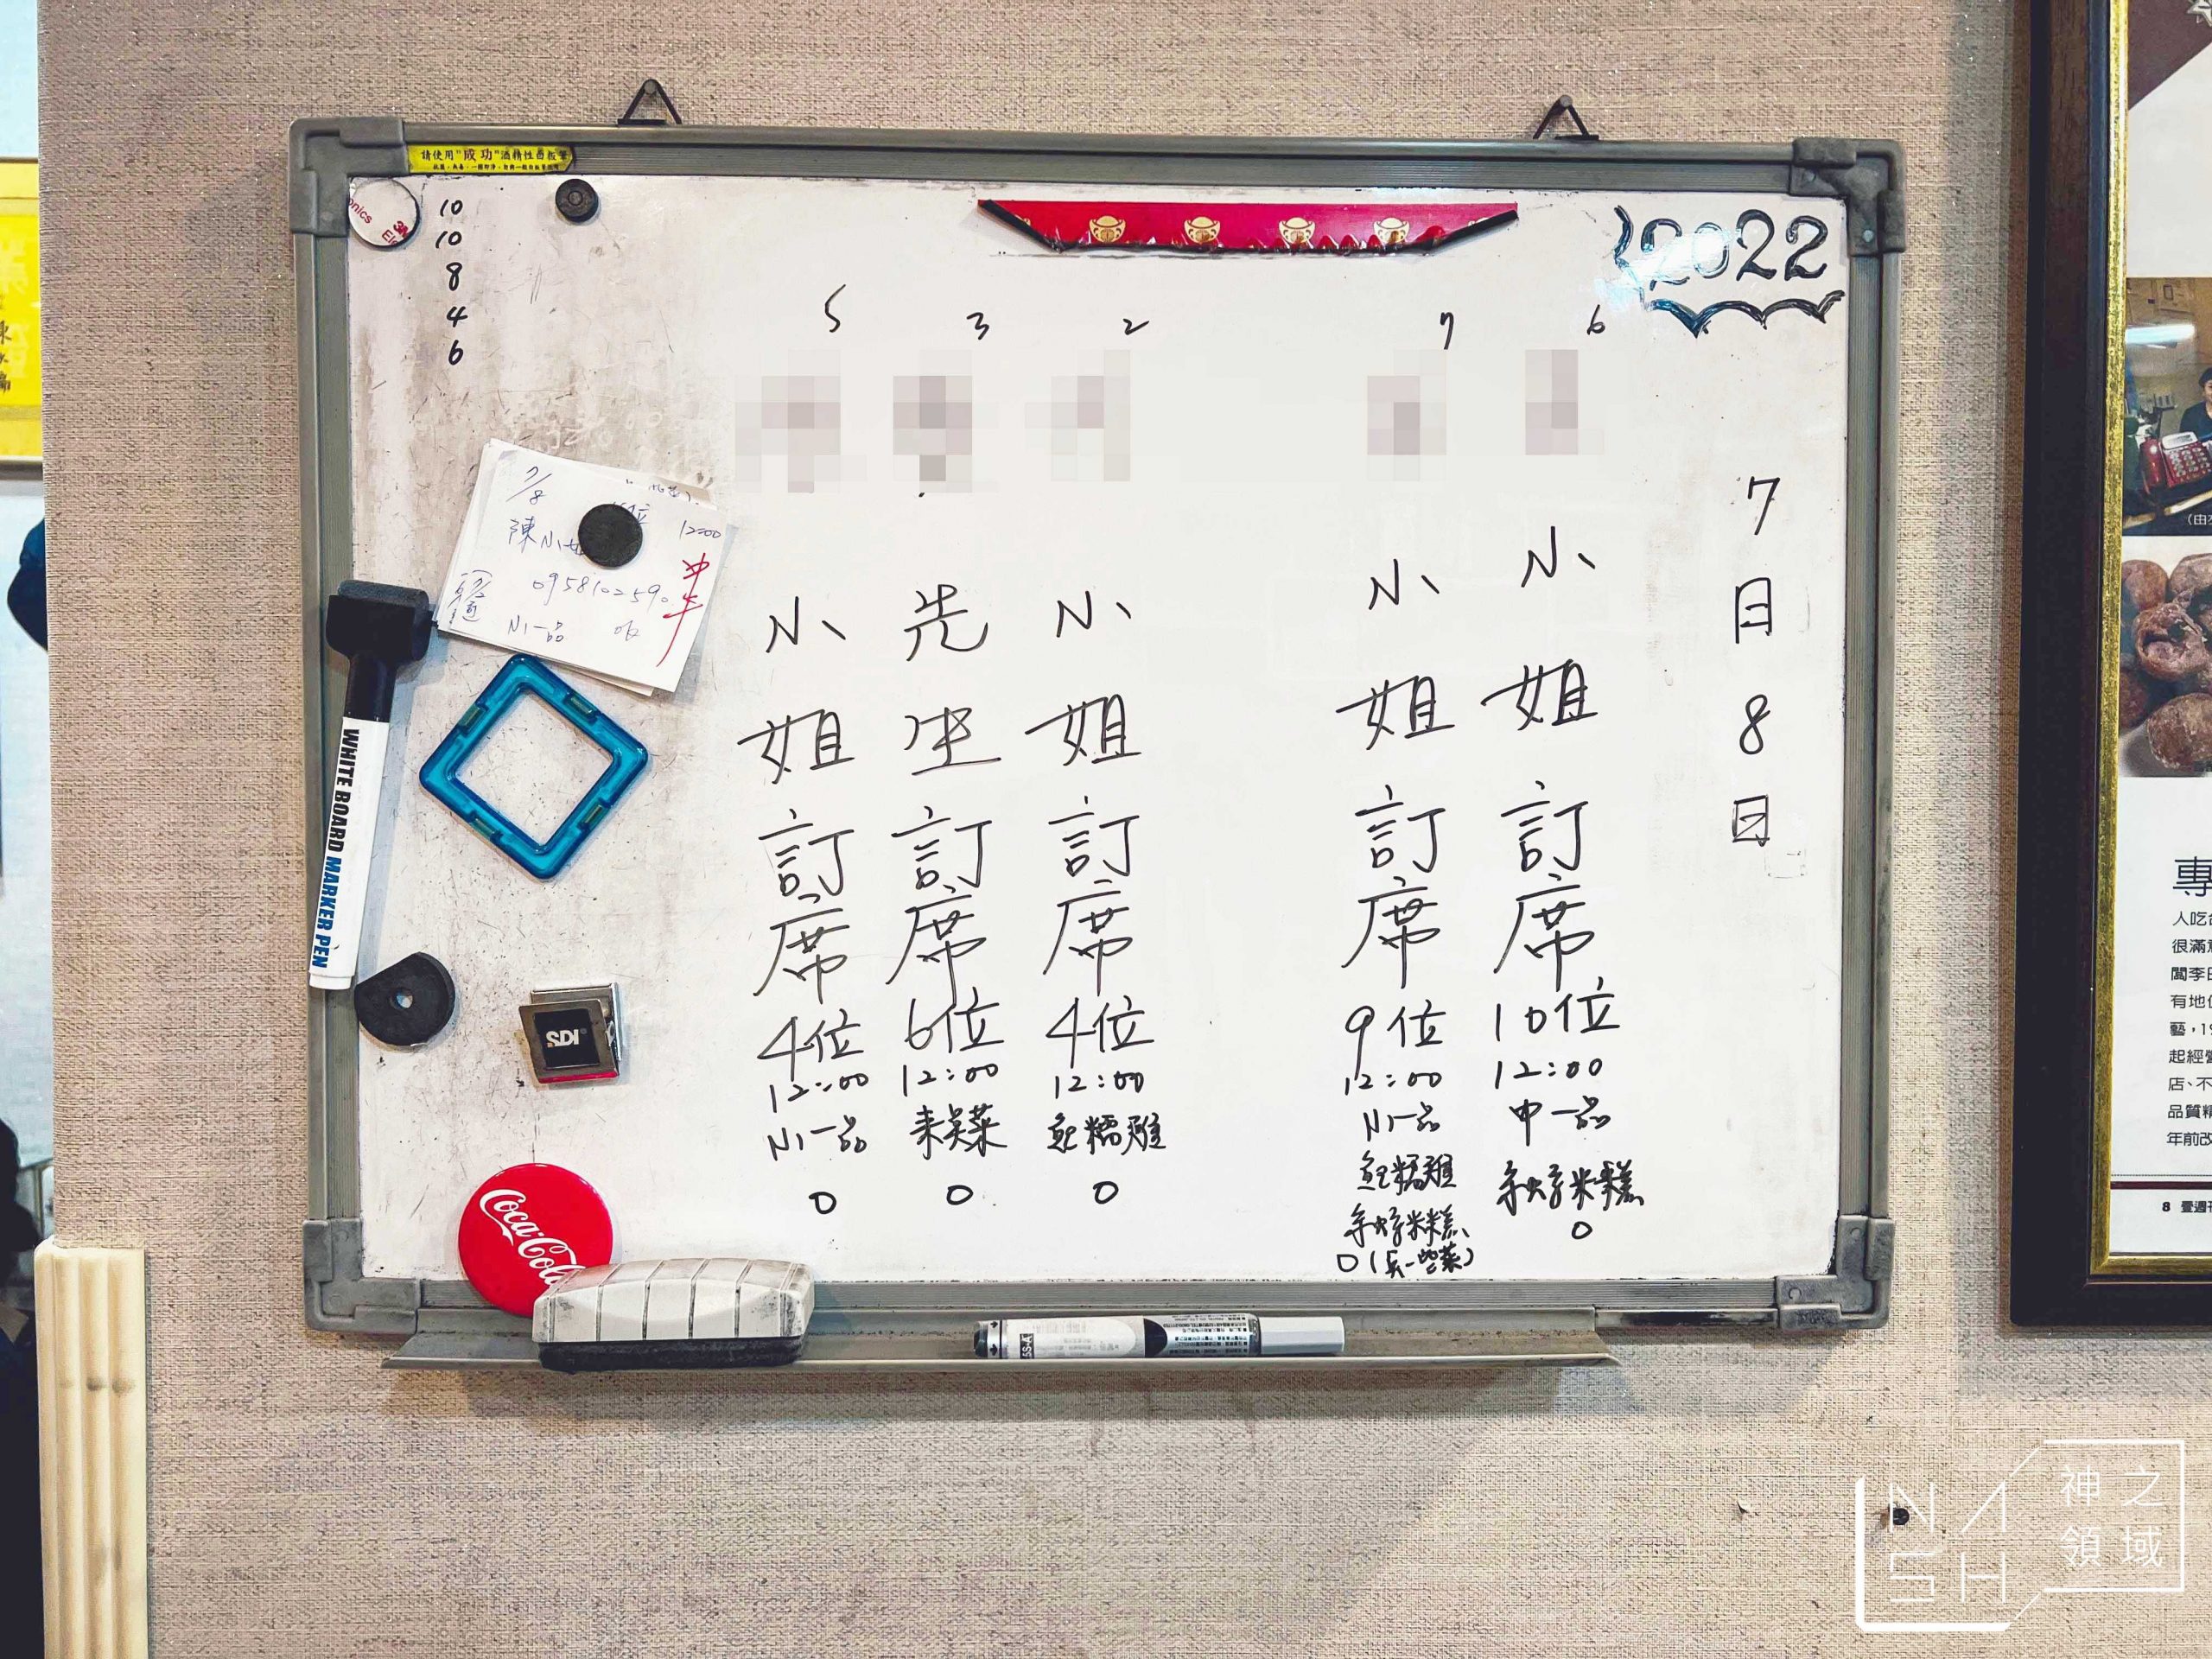 請使用"成功"酒精性白板筆
onics
3M
10
10
8
4
6
2022
7月8日
6
小姐訂席10位
12:00
中一品
米糕
0
7
小姐訂席9位
12:00
小一品
魷糯雞
米糕
0
2
小姐訂席4位
12:00
魷糯雞
0
3
先生訂席6位
12:00
來吴菜
0
5
小姐訂席4位
12:00
小一品
0
7/8
位
12:00
陳小姐
0958102590
小一品
ok
WHITE BOARD MARKER PEN
SDI
Coca-Cola
專
人吃
很滿
闆李
有地
藝,19
起經營
店、不
品質精
年前改
8 壹週刊
(由
NASH
神之
領域